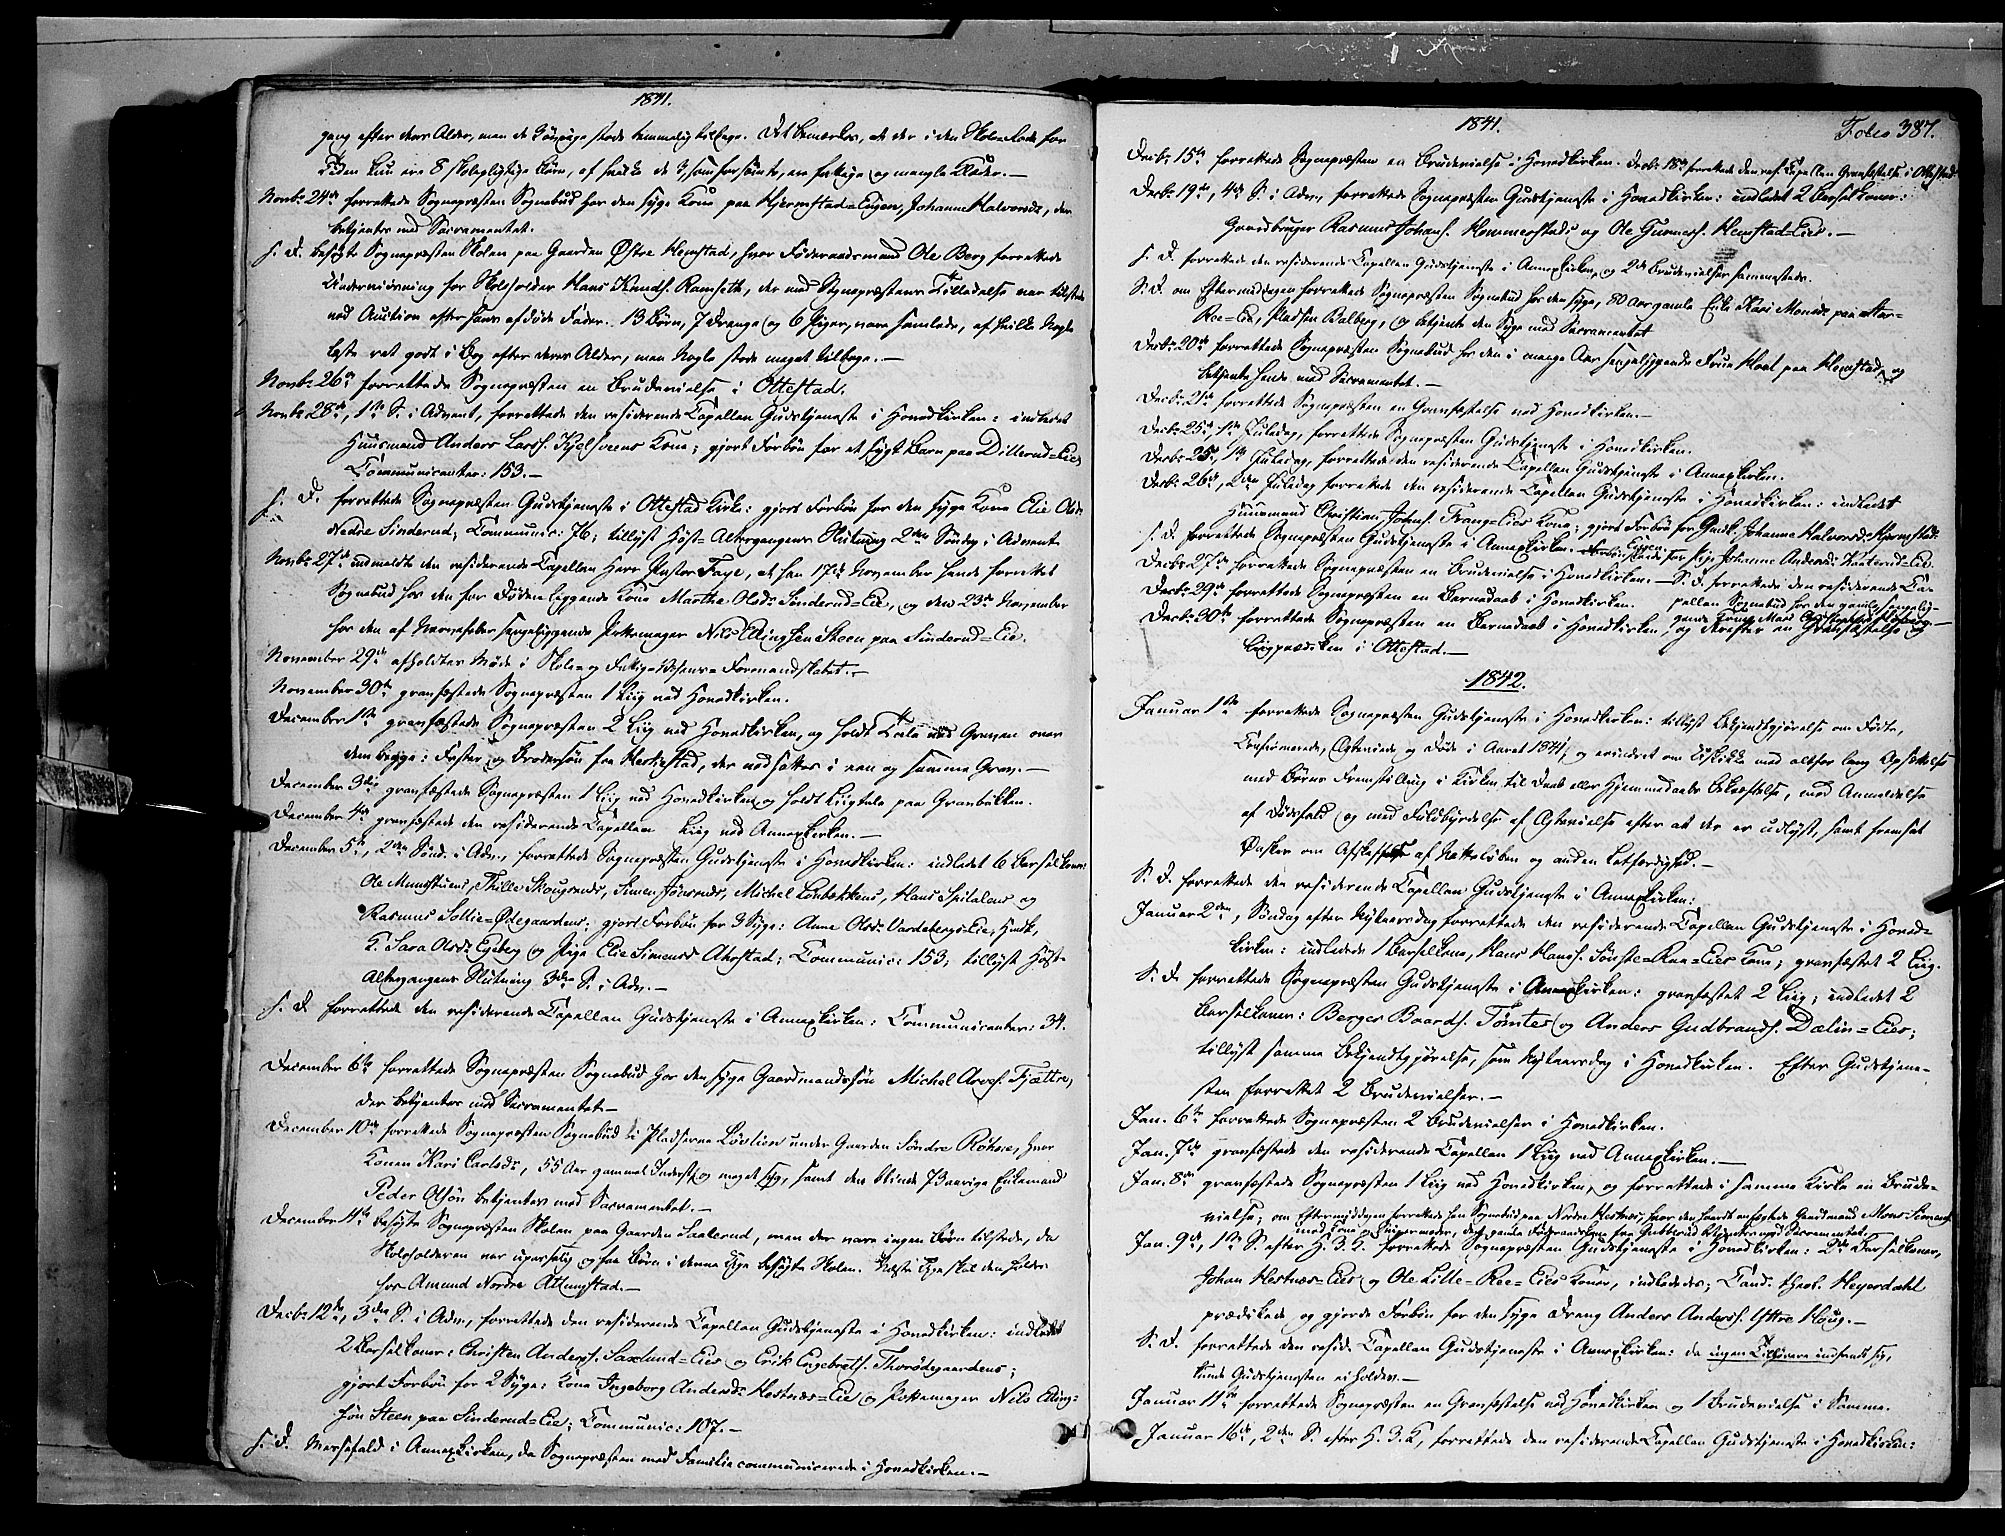 1841.
gang efter deres Alder, men de Øvrige stode temmelig tilbage. Det bemærkes, at der i den Skolerode for
Tiden kun ere 8 skolepligtige Børn, af hvilke de 3, som forsømte, ere fattige og mangle Klæder.—
Novbr. 24de forrettede Sognepræsten Sognebud hos den syge Kone paa Hjermstad=Eigen, Johanne Halvorsd., der
betjentes med Sacramentet.
S. D. besøgte Sognepræsten Skolen paa Gaarden Østre Hemstad, hvor Føderaadsmand Ole Berg forrettede
Underviisning for Skoleholder Hans Knuds. Ramseth, der med Sognepræstens Tilladelse var tilstede
ved Auction efter hans afdøde Fader. 13 Børn, 7 Drenge og 6 Piger, vare samlede, af hvilke Nogle
læste ret godt i Bog efter deres Alder, men Nogle stode meget tilbage.—
Novbr. 26de forrettede Sognepræsten en Brudevielse i Ottestad.
Novbr. 28de, 1ste S. i Advent, forrettede den residerende Capellan Gudstjeneste i Hovedkirken: indledet
Huusmand Anders Larss. Kjelsveens Kone; gjort Forbøn for et sygt Barn paa Dillerud=Eie
Communicanter: 153.—
S. D. forrettede Sognepræsten Gudstjeneste i Ottestad Kirke: gjort Forbøn for den syge Kone Elie Olsd.
Nedre Sinderud; Communic: 76; tillyst Høst=Altergangens Slutning 2den Søndag i Advent.
Novbr. 27de indmeldte den residerende Capellan Herr Pastor Faye, at han 17de November havde forrettet
Sognebud hos den for Døden liggende Kone Marthe Olsd. Sinderud=Eie, og den 23de November
hos den af Nervefeber sengeliggende Pottemager Nils Ellingsen Steen paa Sinderud=Eie.
November 29de afholdtes Møde i Skole og Fattig=Væsens=Formandskabet.—
November 30te gravfæstede Sognepræsten 1 Liig ved Hovedkirken.
December 1ste gravfæstede Sognepræsten 2 Liig ved Hovedkirken, og holdt Tale ved Graven over
dem begge: Faster og Brodersøn fra Herkestad, der nedsattes i een og samme Grav.—
December 3die gravfæstede Sognepræsten 1 Liig ved Hovedkirken og holdt Liigtale paa Gravbakken.
December 4de gravfæstede den residerende Capellan Liig ved Annexkirken.—
December 5te, 2den Sønd. i Adv., forrettede Sognepræsten Gudstjeneste i Hovedkirken: indledet 6 Barselkoner:
Ole Munstuens, Thille Skougrends, Simen Jønsrends, Michel Lovbækkens, Hans Spitalens og
Rasmus Sollie=Ødegaardens; gjort Forbøn for 3 Syge: Anne Olsd. Vardebergs=Eie, Huusk.
K. Sara Olsd. Egeberg og Pige Elie Simensd. Ahrstad; Communic: 153; tillyst Høst=
Altergangens Slutning 3die S. i Adv.—
S. D. forrettede den residerende Capellan Gudstjeneste i Annexkirken: Communicanter: 34.
December 6te forrettede Sognepræsten Sognebud hos den syge Gaardmandssøn Michel Arves. Fjættre,
der betjentes med Sacramentet.—
December 10de forrettede Sognepræsten Sognebud i Pladserne Løvlien under Gaarden Søndre Røhne, hvor
Konen Kari Carlsd., 55 Aar gammel Inderst og meget syg, samt den blinde 73aarige Enkemand
Peder Olsøn betjentes med Sacramentet.—
December 11te besøgte Sognepræsten Skolen paa Gaarden Saalerud, men der vare ingen Børn tilstede, da
Skoleholderen var upasselig og faa Børn i denne Uge besøgte Skolen. Næste Uge skal den holdes
hos Amund Nordre Atlungstad.—
Decbr. 12te, 3die S. i Adv., forrettede den residerende Capellan Gudstjeneste i Hovedkirken: indledet
2 Barselkoner: Christen Anderss. Saxlund=Eies og Erik Engebrets. Thorødegaardens;
gjort Forbøn for 2 Syge: Kone Ingeborg Andersd. Hestnæs=Eie og Pottemager Nils Elling=
søn Steen paa Sinderud=Eie; Communic: 107.—
S. D. Messefald i Annexkirken, da Sognepræsten med Familie communicerede i Hovedkirken.—
1841.
Folio 387.
Decbr. 15de forrettede Sognepræsten en Brudevielse i Hovedkirken. Decbr. 18de forrettede den res. Capellan Gravfæstelse i Ottestad.
Decbr. 19de, 4de S. i Adv., forrettede Sognepræsten Gudstjeneste i Hovedkirken: indledet 2 Barselkoner:
Gaardbruger Rasmus Johans. Hommerstads og Ole Gunners. Hemstad=Eies.—
S. D. forrettede den residerende Capellan Gudstjeneste i Annexkirken, og 2de Brudevielser sammesteds.
S. D. om Eftermiddagen forrettede Sognepræsten Sognebud hos den syge, 80 Aar gamle Enke Kari Monsd. paa Stor=
Ree=Eie, Pladsen Balberg, og betjente den Syge med Sacramentet
Decbr. 20de forrettede Sognepræsten Sognebud hos den i mange Aar sengeliggende Frue Hoel paa Hemstad, og
betjente hende med Sacramentet.—
Decbr. 21de forrettede Sognepræsten en Gravfæstelse ved Hovedkirken.—
Decbr. 25de, 1ste Juledag, forrettede Sognepræsten Gudstjeneste i Hovedkirken.
Decbr. 25de, 1ste Juledag, forrettede den residerende Capellan Gudstjeneste i Annexkirken.
Decbr. 26de, 2den Juledag forrettede den residerende Capellan Gudstjeneste i Hovedkirken: indledet
Huusmand Christian Johns. Frang=Eies Kone; gjort Forbøn for Huusk. Johanne Halvorsd. Hjermstad=
S. D. forrettede Sognepræsten Gudstjeneste i Annexkirken. Eigen og for Pige Johanne Andersd. Kaaterud=Eie.
Decbr. 27de forrettede Sognepræsten en Brudevielse i Hovedkirken.— S. D. forrettede den residerende Ca=
Decbr. 29de forrettede Sognepræsten en Barnedaab i Hovedkirken. pellan Sognebud hos den gamle sengelig=
gende Enke Mari
Decbr. 30te forrettede Sognepræsten en Barnedaab i Hovedkirken, og derefter en Gravfæstelse og
Liigprædiken i Ottestad.—
1842.
Januar 1ste forrettede Sognepræsten Gudstjeneste i Hovedkirken: tillyst Bekjendtgjørelse om Fødte,
Confirmerede, Ægteviede og Døde i Aaret 1841, og erindret om Uskikke med altfor lang Opsættelse
med Børns Fremstilling i Kirken til Daab eller Hjemmedaabs Bekræftelse, med Anmeldelse
af Dødsfald og med Fuldbyrdelse af Ægtevielse efter at der er udlyst, samt fremsat
Ønsker om Afskaffelse af Natteløben og anden Letfærdighed.—
S. D. forrettede den residerende Capellan Gudstjeneste i Annexkirken:
Januar 2den, Søndag efter Nytaarsdag forrettede den residerende Capellan Gudstjeneste i Hoved=
kirken: indledede 1 Barselkone, Hans Hans. Sønste=Ree=Eies Kone; gravfæstet 2 Liig.
S. D. forrettede Sognepræsten Gudstjeneste i Annexkirken: gravfæstet 2 Liig; indledet 2
Barselkoner: Berger Baards. Tømtes og Anders Gudbrands. Dælin=Eies;
tillyst samme Bekjendtgjørelse, som Nytaarsdag i Hovedkirken. Efter Gudstjene=
sten forrettet 2 Brudevielser.—
Jan. 6te forrettede Sognepræsten 2 Brudevielser i Hovedkirken.
Jan. 7de gravfæstede den residerende Capellan 1 Liig ved Annexkirken.—
Jan. 8de gravfæstede Sognepræsten 1 Liig ved Hovedkirken, og forrettede i samme Kirke en Brude=
vielse; om Eftermiddagen forrettede han Sognebud paa Nordre Hestnes, hvor den Gaardmand Mons Simens.
med Kone og Svigermoder, betjentes med Sacramentet.
Jan. 9de, 1ste S. efter H. 3. K. forrettede Sognepræsten Gudstjeneste i Hovedkirken: 2de Barselkoner,
Johan Hestnes=Eies og Ole Lille=Ree=Eies Koner, indlededes; Cand. theol. Heyerdahl
prædikede og gjorde Forbøn for den syge Dreng Anders Anderss. Yttre Houg.—
S. D. forrettede den resid. Capellan Gudstjeneste i Annexkirken: da ingen Tilhørere indfandt sig,
kunde Gudstjenesten ei holdes.—
Januar 11te forrettede Sognepræsten en Gravfæstelse ved Hovedkirken og 1 Brudevielse i Samme.
Januar 16de, 2den S. efter H. 3. K., forrettede den residerende Capellan Gudstjeneste i Hovedkirken: